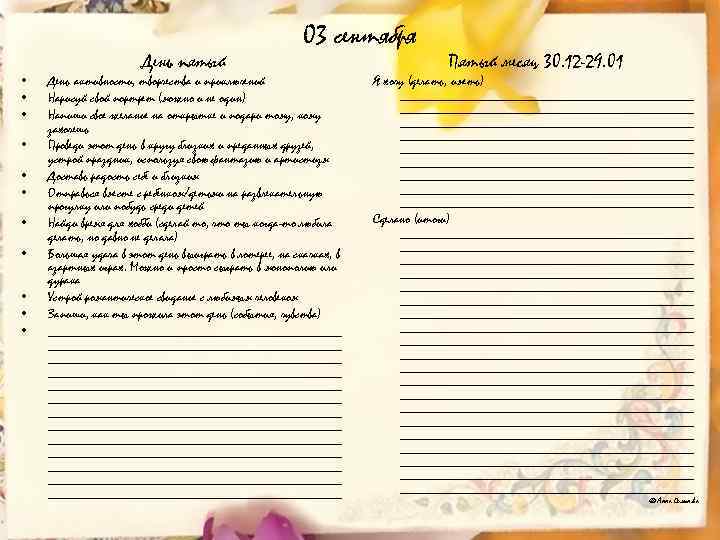 03 сентября
День пятый
• День активности, творчества и приключений
• Нарисуй свой портрет (можно и не один)
• Напиши свое желание на открытке и подари тому, кому
захочешь
• Проведи этот день в кругу близких и преданных друзей,
устрой праздник, используя свою фантазию и артистизм
• Доставь радость себе и близким
• Отправься вместе с ребенком/детьми на развлекательную
прогулку или побудь среди детей
• Найди время для хобби (сделай то, что ты когда-то любила
делать, но давно не делала)
• Большая удача в этот день выиграть в лотерее, на скачках, в
азартных играх. Можно и просто сыграть в монополию или
дурака
• Устрой романтическое свидание с любимым человеком
• Запиши, как ты прожила этот день (события, чувства)
•
Пятый месяц 30.12-29.01
Я хочу (делать, иметь)
Сделано (итоги)
© Анна